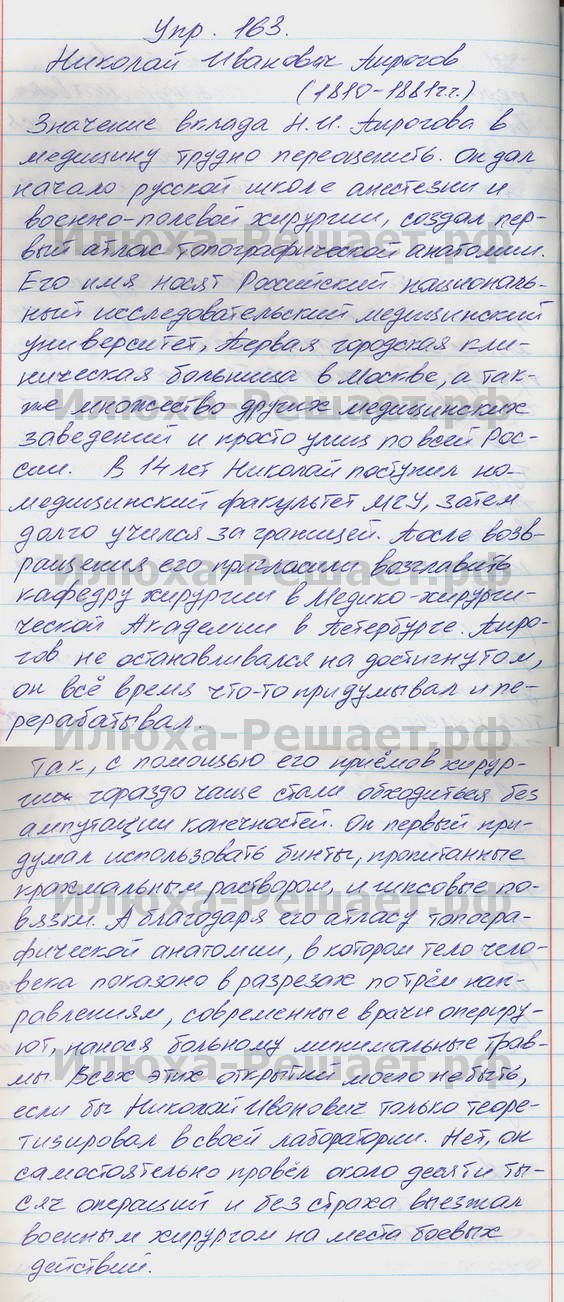 Упр. 163.
Николай Иванович Пирогов
(1810-1881гг.)
Значение вклада Н.И. Пирогова в
медицину трудно переоценить. Он дал
начало русской школе анестезии и
военно-полевой хирургии, создал пер-
вый атлас топографической анатомии.
Его имя носят Российский националь-
ный исследовательский медицинский
университет, Первая городская кли-
ническая больница в Москве, а так-
же множество других медицинских
заведений и просто улиц по всей Рос-
сии. В 14 лет Николай поступил на
медицинский факультет МГУ, затем
долго учился за границей. После возв-
ращения его пригласили возглавить
кафедру хирургии в Медико-хирурги-
ческой Академии в Петербурге. Пиро-
гов не останавливался на достигнутом,
он всё время что-то придумывал и пе-
рерабатывал.
Так, с помощью его приёмов хирур-
гии гораздо чаще стали обходиться без
ампутации конечностей. Он первый при-
думал использовать бинты, пропитанные
крахмальным раствором, и гипсовые по-
вязки. А благодаря его атласу топогра-
фической анатомии, в котором тело чело-
века показано в разрезах по трём нап-
равлениям, современные врачи оперир-
уют, нанося больному минимальные трав-
мы. Всех этих открытий могло не быть,
если бы Николай Иванович только теоре-
тизировал в своей лаборатории. Нет, он
самостоятельно провёл около десяти ты-
сяч операций и без страха выезжал
военным хирургом на места боевых
действий.
Илюха-Решает.рф
Илюха-Решает.рф
Илюха-Решает.рф
Илюха-Решает.рф
Илюха-Решает.рф
Илюха-Решает.рф